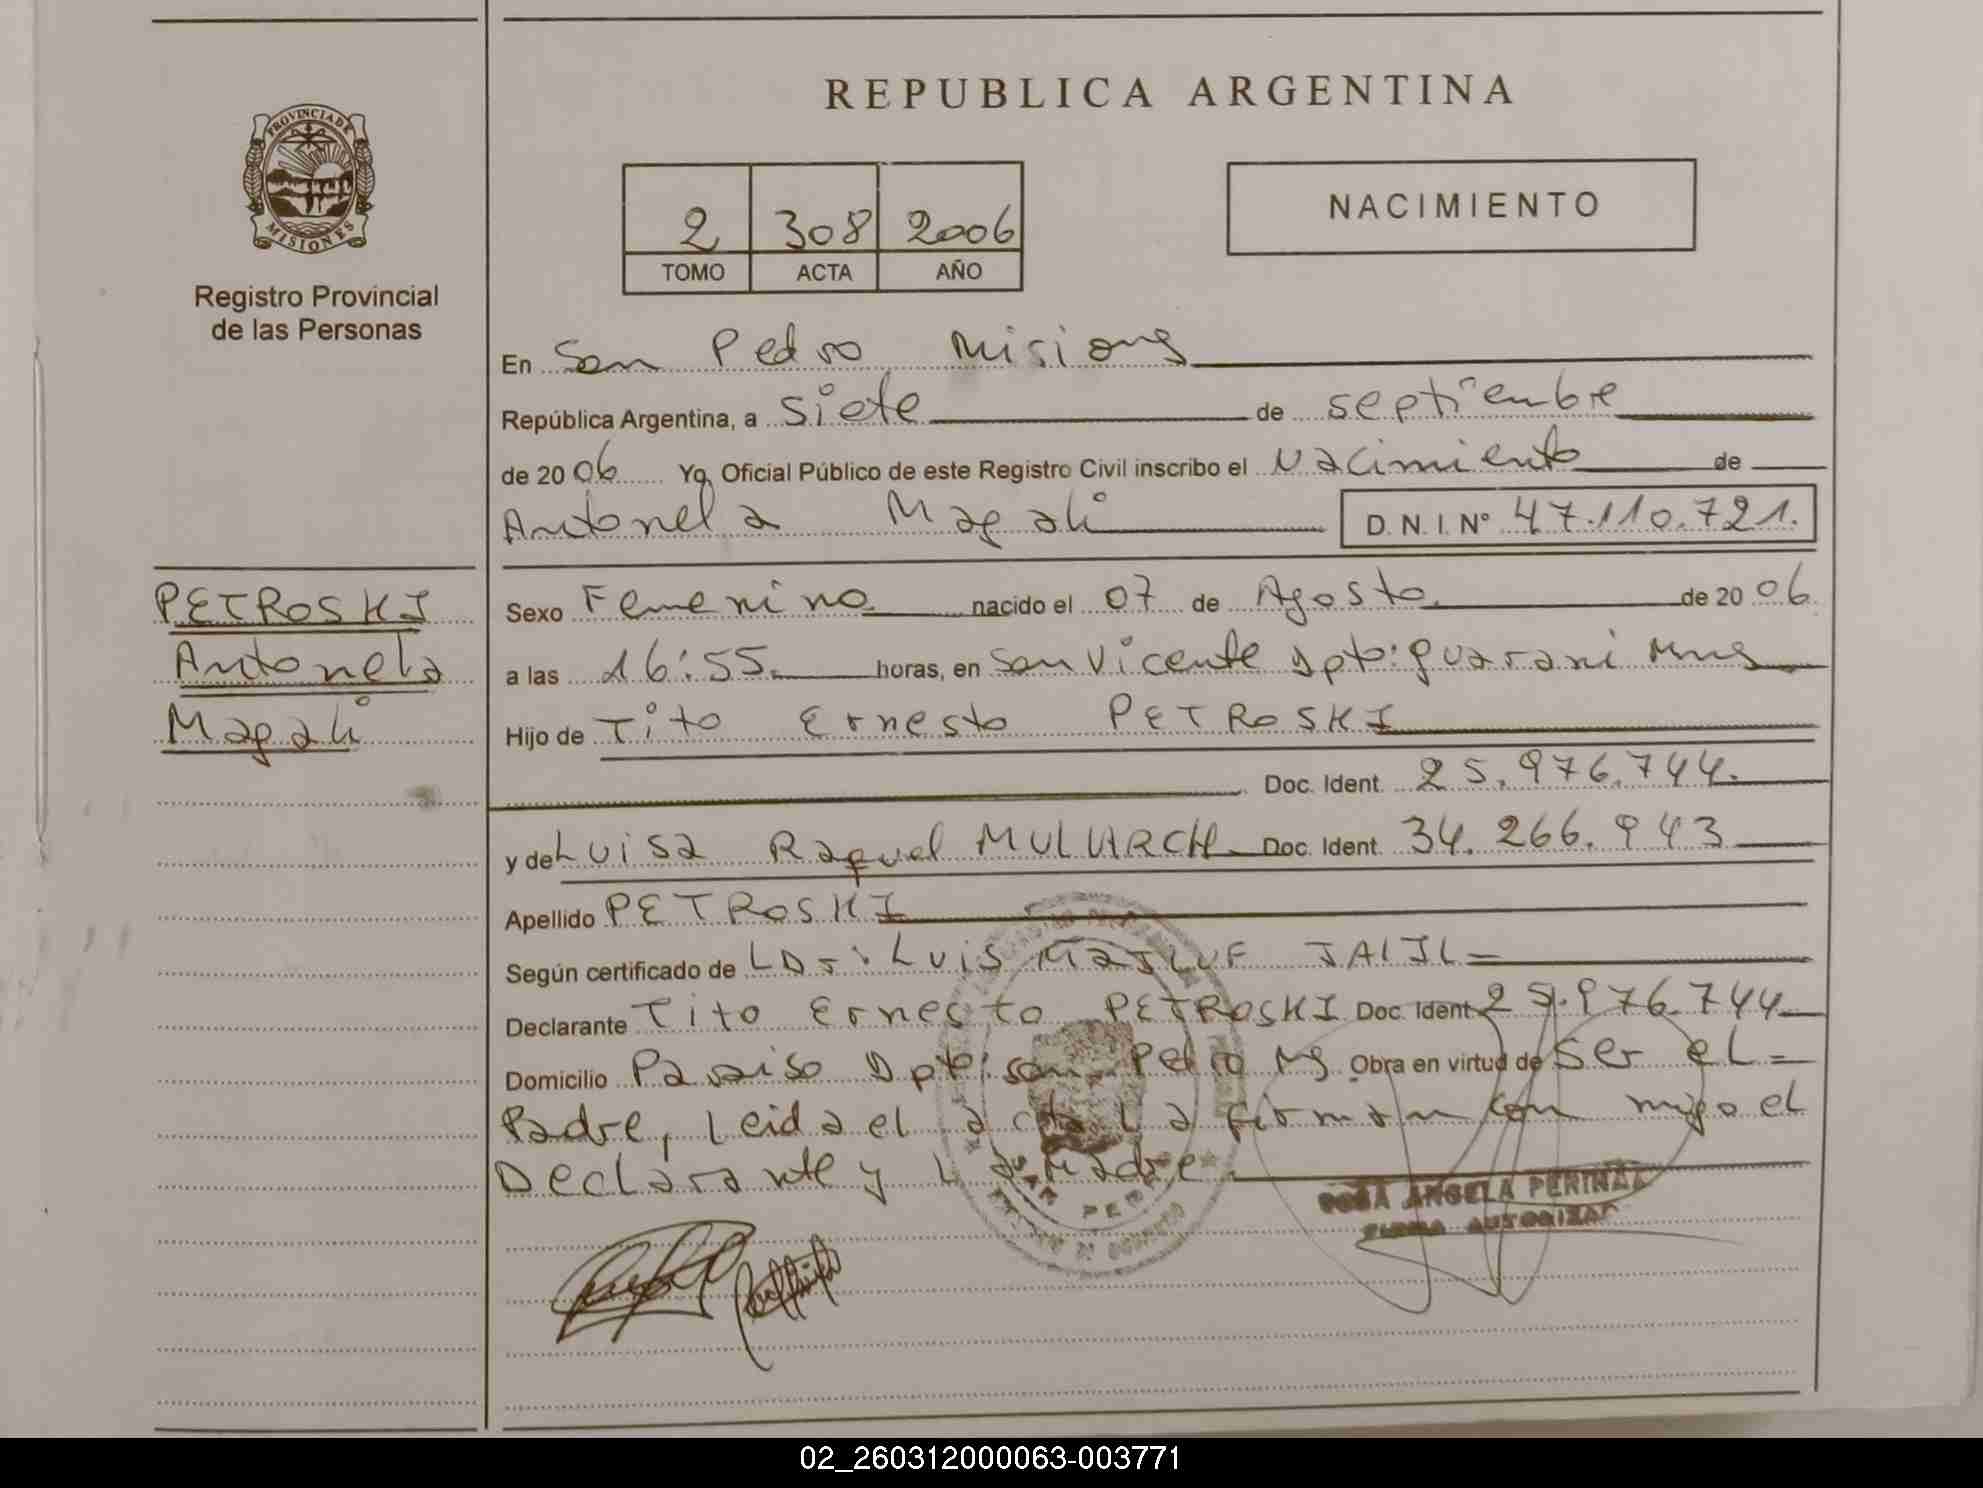 REPUBLICA ARGENTINA
PROVINCIA DE
MISIONES
Registro Provincial
de las Personas
2 308 2006
TOMO ACTA AÑO
NACIMIENTO
En San Pedro Misiones
República Argentina, a Siete de septiembre
de 2006 Yo, Oficial Público de este Registro Civil inscribo el Nacimiento de
Antonela Magali D.N.I. N° 47.110.721.
PETROSKI
Antonela
Magali
Sexo Femenino nacido el 07 de Agosto de 2006
a las 16:55 horas, en San Vicente Dpto: guarani Mns
Hijo de Tito Ernesto PETROSKI
Doc. Ident. 25.976.744.
y de Luisa Raquel MULHARCH Doc. Ident. 34.266.943
Apellido PETROSKI
Según certificado de LDr: Luis JALIL =
Declarante Tito Ernesto PETROSKI Doc. Ident 25.976.744
Domicilio Paraiso Dpto: San Pedro Ms Obra en virtud de Ser el =
Padre, Leida el acta La firman con migo el
Declarante y La Madre
ROSA ANGELA
FIRMA AUTORIZAD
02_260312000063-003771